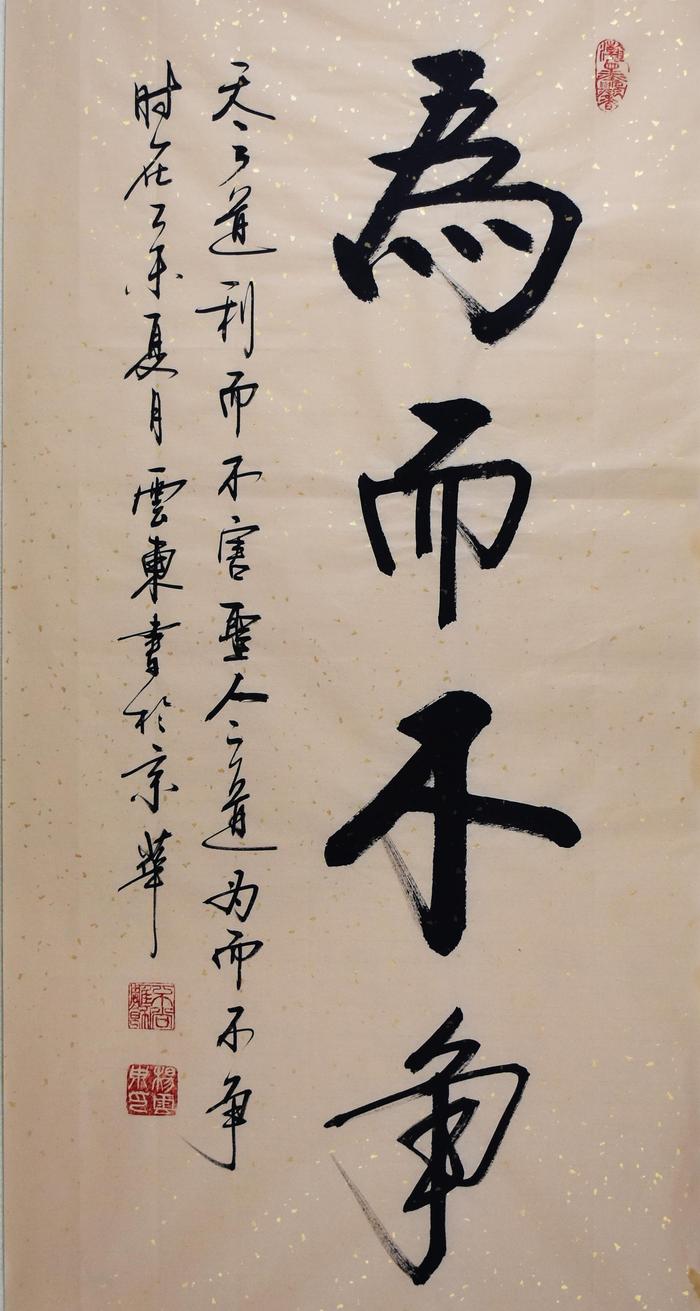 為而不争
天之道利而不害聖人之道为而不争
时在乙未夏月雲東書於京華
楊雲東印